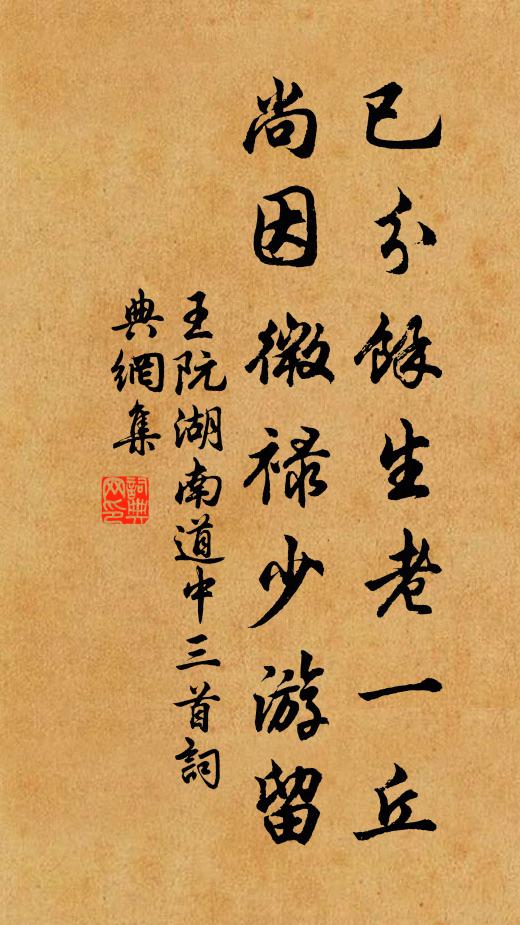 已分餘生老一丘
尚因微禄少游留
王阮湖南道中三首詞
典網集
詞典網印